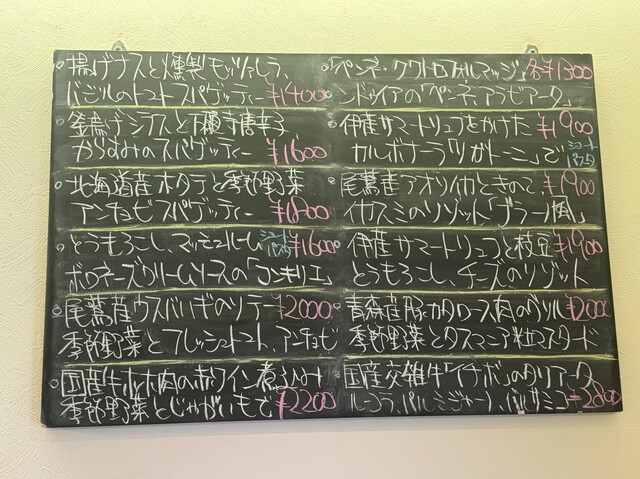 揚げナスと燻製モッツァレラ、
バジルのトマトスパゲッティー ¥1400
釜揚げシラスと万願寺唐辛子
からすみのスパゲッティー ¥1600
北海道産ホタテと季節野菜
アンチョビスパゲッティー ¥1800
とうもろこし、マッシュルーム ショートパスタ ¥1600
ボロネーズクリームソースの「コンキリエ」
尾鷲産ウスバハギのソテー ¥2000
季節野菜とフレッシュトマト、アンチョビ
国産牛ホホ肉の赤ワイン煮込み
季節野菜とじゃがいもで ¥2200
「ペンネ・クワトロフォルマッジ」 各¥1300
ンドゥイアの「ペンネアラビアータ」
伊産サマートリュフをかけた ¥1900
カルボナーラ「リガトーニ」で ショートパスタ
尾鷲産アオリイカときのこ、 ¥1900
イカスミのリゾット「ブラーノ風」
伊産サマートリュフと枝豆 ¥1900
とうもろこし、チーズのリゾット
青森産豚カタロース肉のグリル ¥2000
季節野菜とタスマニア粒マスタード
国産交雑牛「イチボ」のタリアータ
ルーコラ、パルミジャーノ、バルサミコ ¥2800